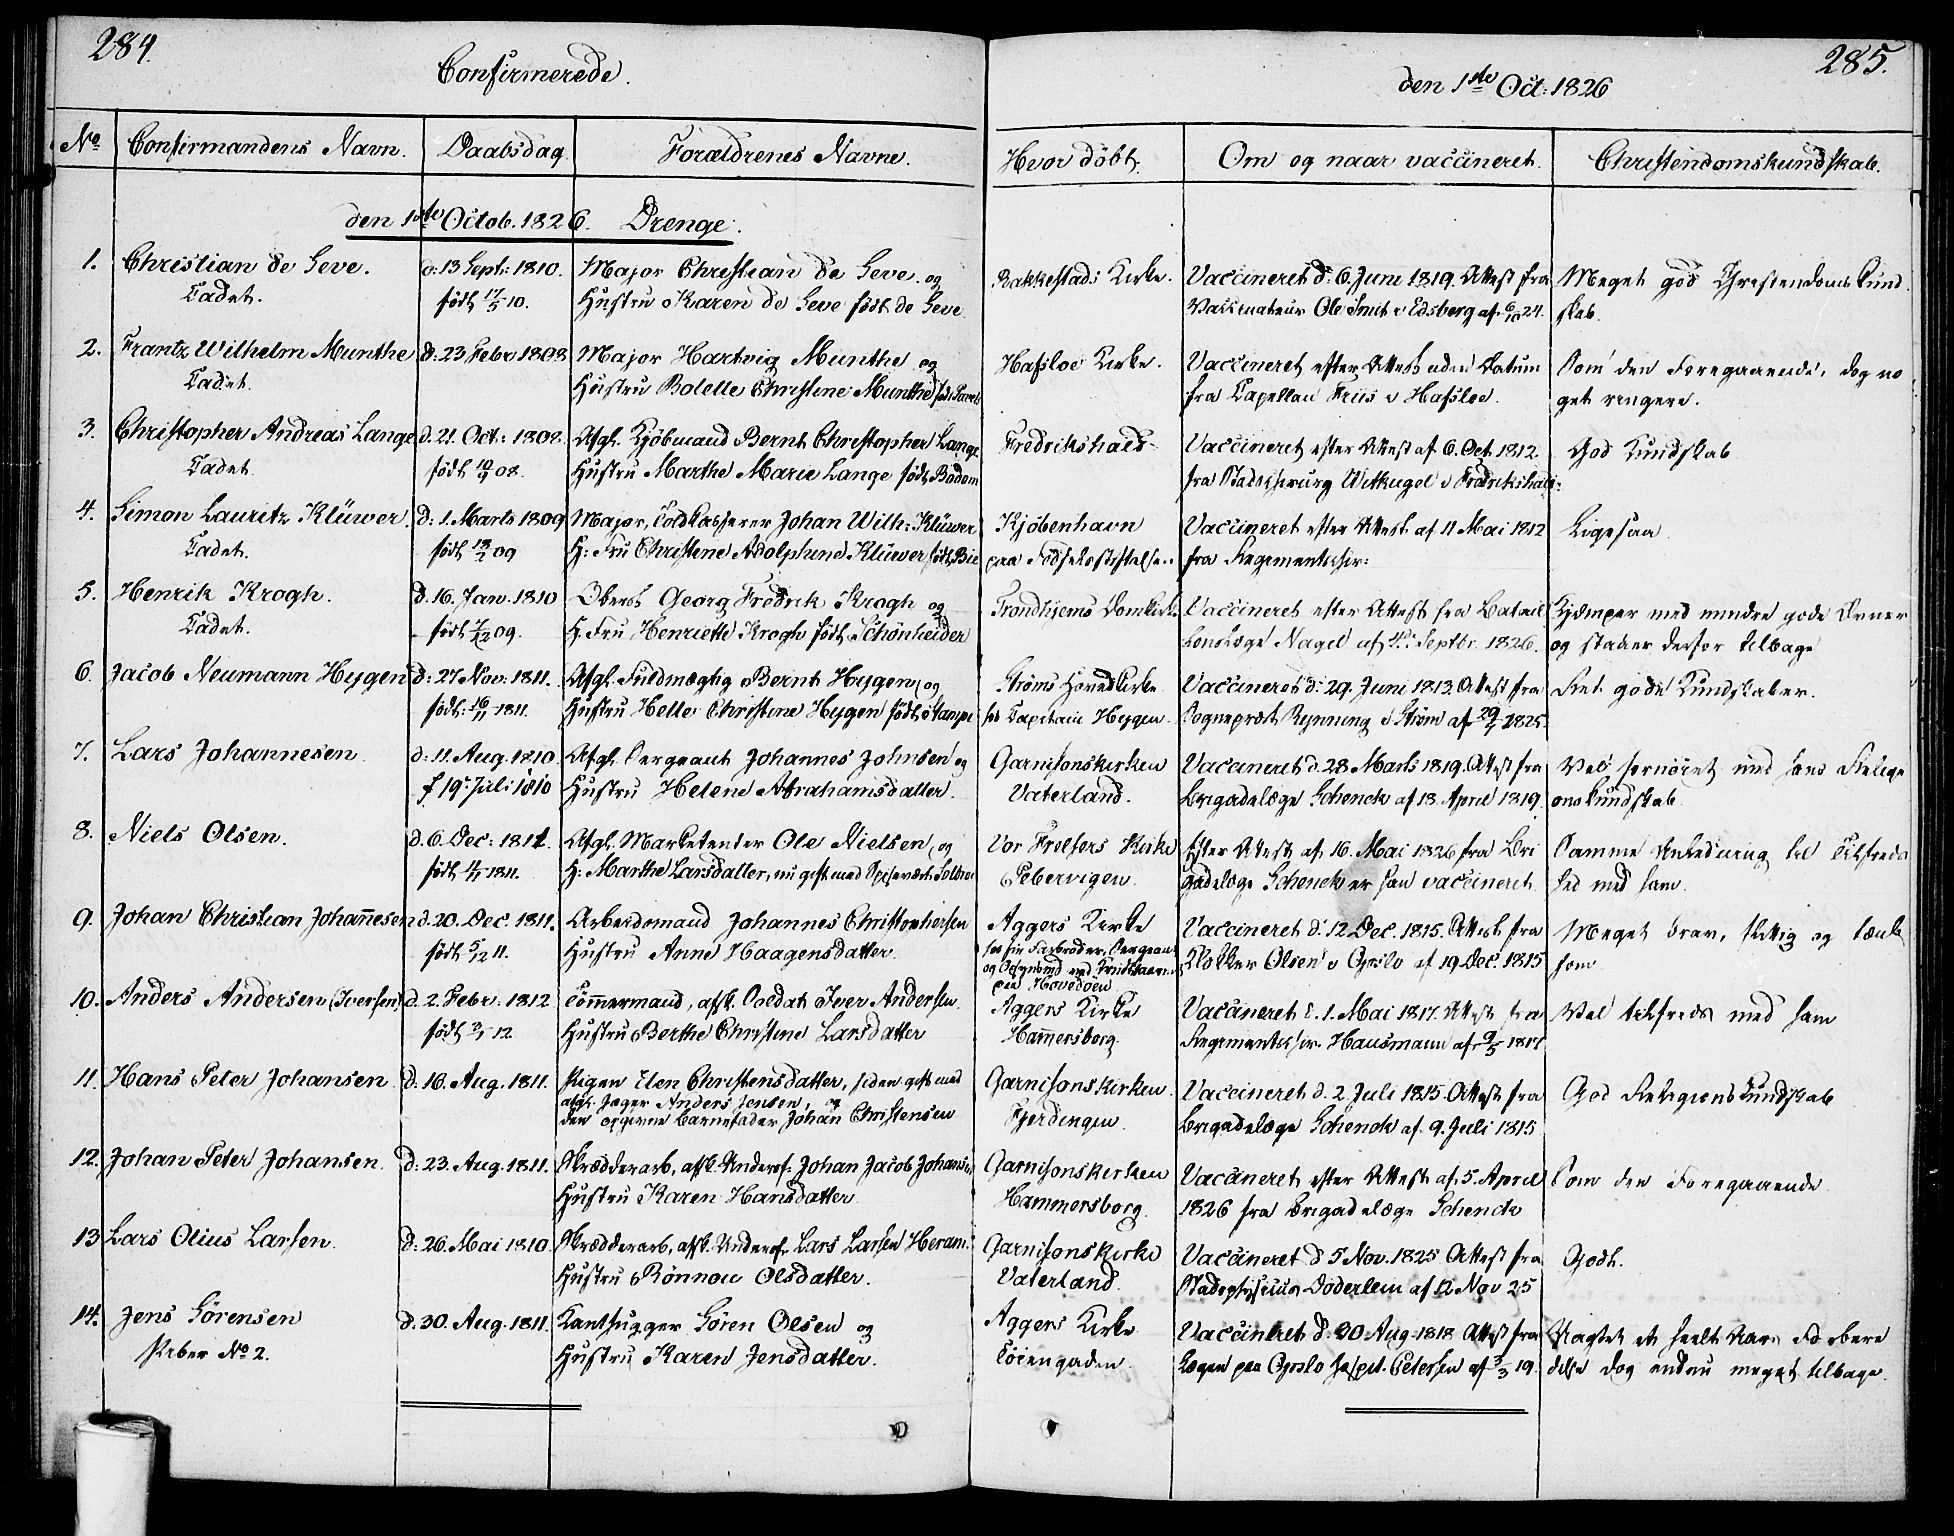 284.
Confirmerede.
No Confirmandens Navn. Daabsdag Forældrenes Navne.
den 1ste Octob. 1826. Drenge.
1. Christian de Seve. d: 13 Sept: 1810. Major Christian de Seve og
Cadet. født 17/5 10. Hustru Karen de Seve født de Seve
2. Frantz Wilhelm Munthe d: 23 Febr 1808 Major Hartvig Munthe og
Cadet. Hustru Bolette Christine Munthe født
3. Christopher Andreas Lange d. 21. Oct: 1808. Afgl. Kjøbmand Bernt Christopher Lange
Cadet. født 08. Hustru Marthe Marie Lange født Badom
4. Simon Lauritz Klüwer d: 1. Marts 1809 Major, Toldkasserer Johan Wilh: Klüwer
Cadet. født 18/2 09 H: Fru Christine Adolphine Klüwer født Bie
5. Henrik Krogh. d. 16. Jan. 1810 Oberst Georg Fredrik Krogh og
Cadet. født 7/12 09. H. Fru Henriette Krogh født Schönheider
6. Jacob Neumann Hygen d: 27 Nov: 1811. Afgl. Fuldmægtig Bernt Hygen, og
født: 16/11 1811. Hustru Helle Christine Hygen født Stampe
7. Lars Johannesen d: 11. Aug. 1810. Afgl. Sergeant Johannes Johnsen og
f 19. Juli 1810 Hustru Helene Abrahamsdatter.
8. Niels Olsen. d. 6. Dec: 1811. Afgl. Marketenter Ole Nielsen, og
født 1811. H: Marthe Larsdatter, nu gift med Spisevært
9. Johan Christian Johannesen d. 20. Dec. 1811. Arbeidsmand Johannes Christophersen
født 5/12 11. Hustru Anne Haagensdatter.
10. Anders Andersen (Iversen) d. 2. Febr. 1812 Tømmermand, afsk. Soldat Iver Andersen
født 3/1 12. Hustru Berthe Christine Larsdatter
11. Hans Peter Johansen d. 16. Aug. 1811. Pigen Elen Christensdatter, siden gift med
afgl. Jæger Anders Jensen, og
den opgivne Barnefader Johan Christensen
12. Johan Peter Johansen. d: 23. Aug. 1811. Skrædderarb, afsk. Underof: Johan Jacob Johansen
Hustru Karen Hansdatter
13 Lars Olius Larsen. d: 26. Mai 1810. Skrædderarb, afsk. Underof. Lars Larsen
Hustru Rønnou Olsdatter.
14. Jens Sörensen d. 30. Aug. 1811. Kanthugger Sören Olsen og
No 2. Hustru Karen Jensdatter.
285.
den 1ste Oct: 1826
Hvor døbt. Om og naar vaccineret. Christendomskundskab.
Rakkestads Kirke. Vaccineret d: 6. Juni 1819. Attest fra Meget god Christendoms Kund
Vaccinateur Ole Smit i Edsberg af 24. skab.
Hafsloe Kirke. Vaccineret efter Attest uden Datum Som den Foregaaende, dog no
fra Capellan Friis i Hafsloe. get ringere.
Fredrikshald Vaccineret efter Attest af 6. Oct 1812 God Kundskab
fra Stadschirurg Witkugel i Fredrikshald:
Kjøbenhavn Vaccineret efter Attest af 11 Mai 1812 Ligesaa
paa Fødselsstiftelsen. fra Regimentschir:
Trondhjems Domkirke Vaccineret efter Attest fra Batail Kjæmper med mindre gode Evner
lonslæge Nagel af 4de Septbr. 1826. og staaer derfor tilbage
Strøms Hovedkirke Vaccineret d: 29. Juni 1813. Attest fra Ret gode Kundskaber.
hos Capitain Hygen. Sognepræst Rynning i Strøm af 1825.
Garnisonskirken Vaccineret d. 28 Marts 1819. Attest fra Vel fornøiet med hans Religi
Vaterland. Brigadelæge Schenck af 13. April 1819. onskundskab.
Vor Frelsers Kirke Efter Attest af 16. Mai 1826 fra Bri Samme Anledning til Tilfreds
Pebervigen. gadelæge Schenck er han vaccineret. hed med ham.
Aggers Kirke Vaccineret d: 12 Dec. 1815. Attest fra Meget brav, flittig og tænk
hos sin Farbroder, Sergeant
og Opsynsmd ved Krudttaarnet Klokker Olsen i Opslo af 19 Dec. 1815 som
paa Hovedøen
Aggers Kirke Vaccineret d. 1. Mai 1817. Attest fra Vel tilfreds med ham
Hammersborg. Regimentschir. Hausmann af 9/5 1817
Garnisonskirken Vaccineret d. 2 Juli 1815. Attest fra God Religions Kundskab
Fjerdingen. Brigadelæge Schenck af 9. Juli 1815
Garnisonskirken Vaccineret efter Attest af 5. April Som den Foregaaende.
Hammersborg. 1826 fra Brigadelæge Schenck
Garnisonskirke Vaccineret d 5 Nov. 1825 Attest fra Godt.
Vaterland. Stadsphysicus Döderlein af 12 Nov 25
Aggers Kirke Vaccineret d. 30 Aug. 1818. Attest fra Uagtet et heelt Aars Forbere
Tøiengaden. Lægen paa Opslo Hospit. Petersen af 3/3 19. delse dog endnu meget tilbage.